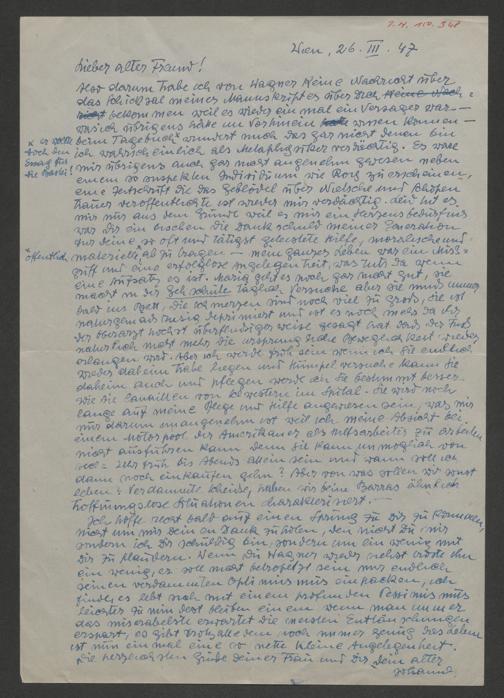 Wien, 26. III. 47
Lieber alter Freund!
Also darum habe ich von Wagner keine Nachricht über
das Schicksal meines Manuskriptes über
bekommen weil es wieder einmal ein Versager war —
was ich übrigens hätte im Vorhinein wissen können —
beim Tagebuch wundert mich das gar nicht denn bin
ich wahrscheinlich als Metaphysiker verdächtig. Es wäre
mir übrigens auch gar nicht angenehm gewesen neben
einem so suspekten Individuum wie zu erscheinen,
eine Zeitschrift die das über Nietzsche und Schopen
hauer veröffentlichte ist wieder mir verdächtig. Leid tut es
mir nur aus dem Grunde weil es mir ein Herzensbedürfnis
war dir ein bischen die Dankschuld meiner Generation
für deine so oft und tätigst geleistete Hilfe, moralische und
öffentlich
materielle, ab zu tragen — mein ganzes Leben war ein Miss=
griff und eine erfolglose Angelegenheit, was tuts da wenn
eine Aufsatz es ist. Maria geht es noch gar nicht gut, sie
macht zu täglich Versuche aber sie muss immer
bald ins Bett, die Schmerzen sind noch viel zu gross, sie ist
naturgemäss riesig deprimiert und ist es noch mehr da ihr
der Oberarzt höchst überflüssiger weise gesagt hat dass der Fuss
natürlich nicht mehr die ursprüngliche Beweglichkeit wieder
erlangen wird. Aber ich werde froh sein wenn ich sie endlich
wieder daheim habe liegen und Humpelversuche kann sie
daheim auch und pflegen werde ich sie bestimmt besser
wie die Canaillen von Schwestern im Spital. Sie wird noch
lange auf meine Pflege und Hilfe angewiesen sein, was mir
nur darum unangenehm ist weil ich meine Absicht bei
einem Motorpool der Amerikaner als Hilfsarbeiter zu arbeiten
nicht ausführen kann denn sie kann unmöglich von
Uhr früh bis Abends allein sein und wann soll ich
dann noch einkaufen gehn? Aber von was sollen wir sonst
leben? Verdammte Scheisse, haben wir beim Barras ähnlich
hoffnungslose Situationen charakterisiert. —
Ich hoffe recht bald auf einen Sprung zu Dir zu kommen,
nicht um mir dein zu holen, den nicht Du mir
sondern ich Dir schuldig bin, sondern um ein wenig mit
Dir zu plaudern. Wenn Du Wagner wieder siehst tröste ihn
ein wenig, er soll nicht betropetzt sein nur endlich
seinen verdammten Optimismus einpacken, ich
finde, es lebt sich mit einem profunden Pessimismus
leichter zu mindest bleiben einem wenn man immer
das miserabelste erwartet die meisten Enttäuschungen
erspart, es gibt trotz alledem noch immer genug das Leben
ist nun einmal eine so nette kleine Angelegenheit.
Die herzlichsten Grüsse deiner Frau und Dir dein alter
Johann